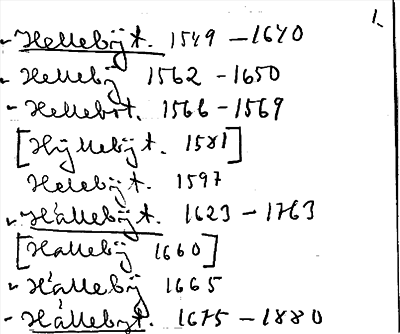 1.
- Hellebÿt. 1549 - 1640
- Hellebÿ 1562 - 1650
- Hellebot. 1566 - 1569
[Hÿllebÿt. 1581]
Helebÿt. 1597
- Hállebÿt. 1623 - 1763
[Hallebÿ 1660]
- Hállebÿ 1665
- Hállebyt. 1675 - 1880